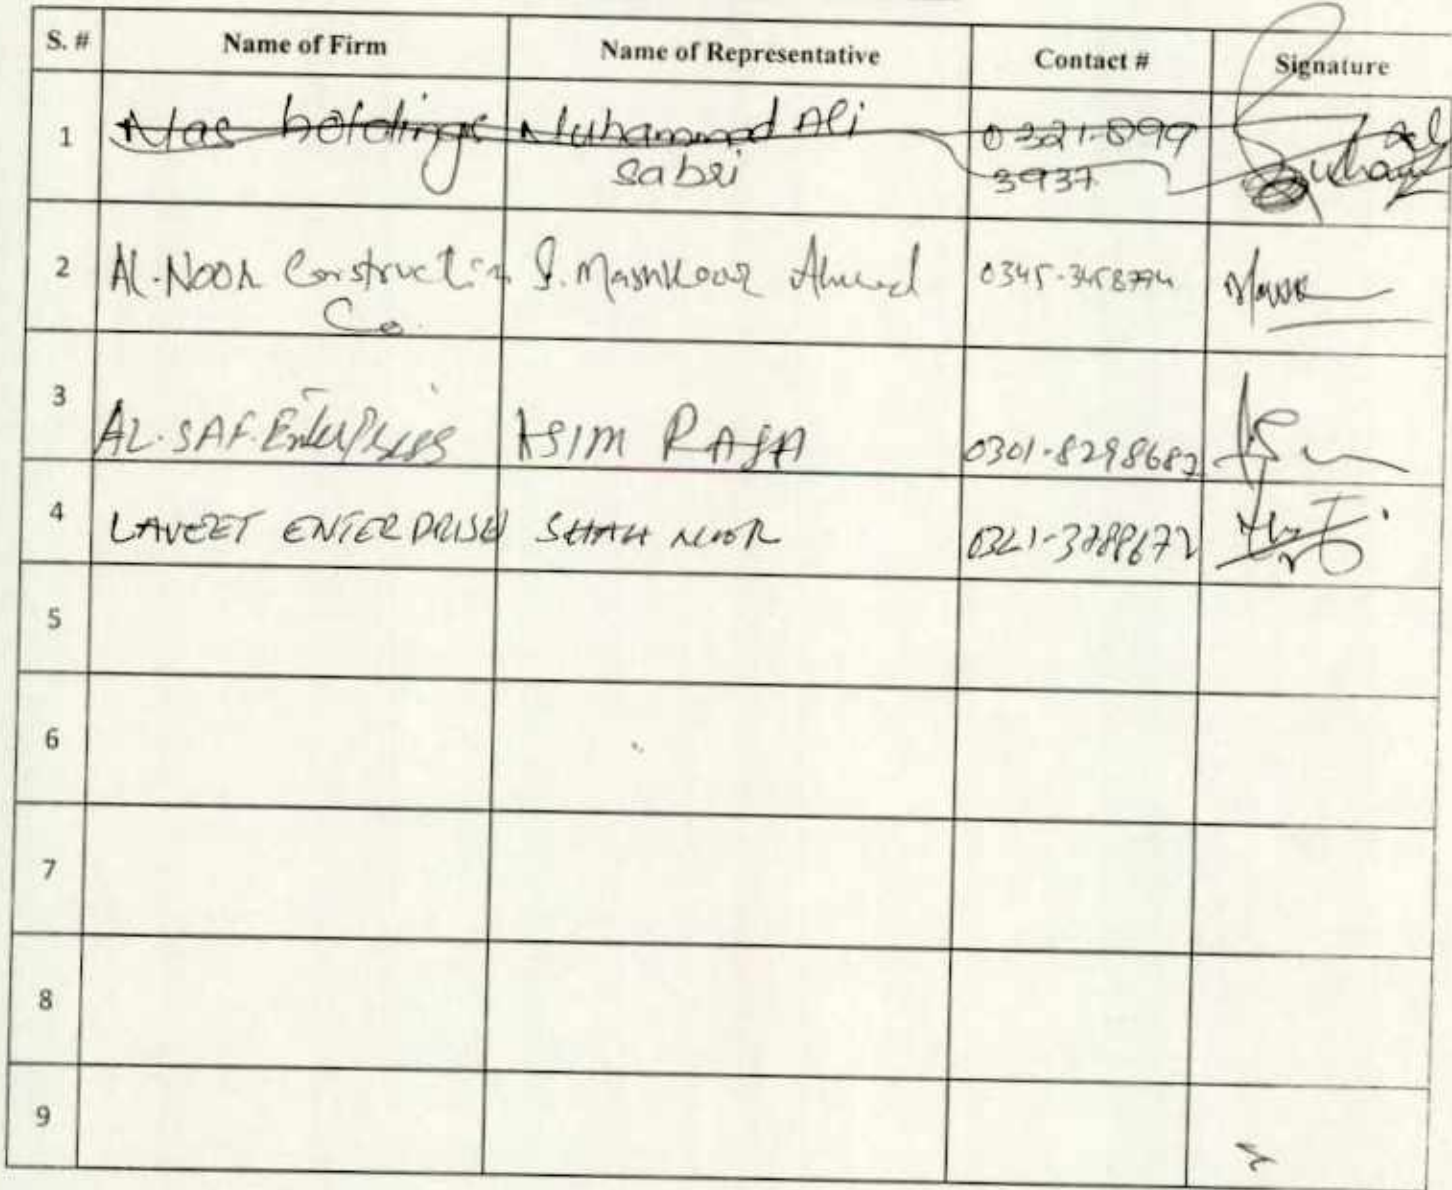 S. # Name of Firm Name of Representative Contact # Signature
1 Nas holdings Muhammad Ali 0321-899
sabri 3937
2 Al-Noor Construction S. Mashkoor Ahmed
Co.
3 AL-SAF Enterprises ASIM RAJA 0301-8298682
4 LAVEET ENTERPRISE SHAH NOOR 0321-3788672
5
6
7
8
9